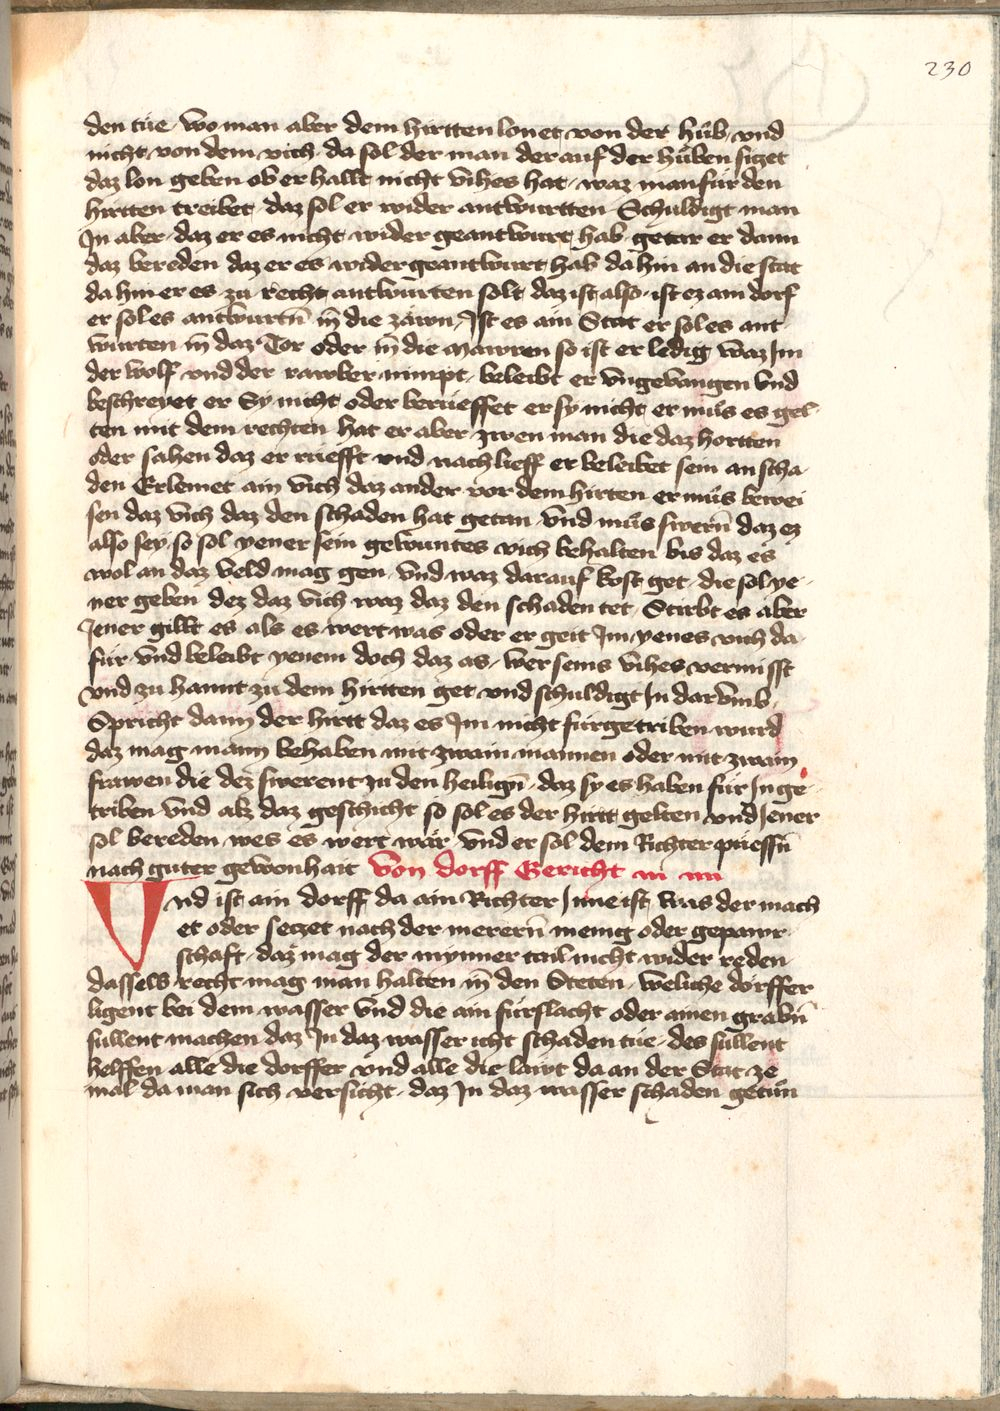 230
den tüe · wo man aber dem hirtten lonet von der hůb · vnd
nicht von dem vich · da sol der man der auf der hůben siczet
daz lon geben ob er hallt nicht vihes hat · waz man für den
hirtten treibet · daz sol er wider antwurtten · Schuldigt man
Jn aber · daz er es nicht wider geantwurt hab · getar er dann
daz bereden daz er es wider geantwurt hab da hin an die stat
da hin er es zu recht antwurten solt daz ist also · ist ez ain dorf
er sol es antwurtn̄ in die zäwn · Jst es ain Stat er sol es ant
wurten in daz Tor oder in die mawren so ist er ledig waz Jm
der wolf vnd der rawber nimpt · beleibt er vngevangen vnd
beschreyet er Sy nicht oder berüeffet er sy nicht er můs es gel
ten mit dem rechten hat er aber zwen man die daz hortten
oder sahen daz er rüefft vnd nachlieff er beleibet sein an scha
den Erlemet ain vich daz ander vor dem hirten er můs bewei
sen daz vich daz den schaden hat getan vnd můs swern̄ daz ez
also sey · so sol yener sein gewuntes vich behalten bis daz es
wol an daz veld mag gen · vnd waz darauf kost get · die sol ye
ner geben dez daz vich waz daz den schaden tet Stirbt es aber
Jener gillt es als es wert was oder er geit Jm yenes vich da
für vnd beleibt yenem doch daz as · wer seins vihes vermisst
vnd zu hannt zu dem hirtten get vnd schuldigt Jn darvmb ·
Spricht dann der hirtt daz es Jm nicht fürgetriben wurd
daz mag mann behaben mit zwain mannen oder mit zwain
frawen die dez swerent zu den heilign̄ · daz sy es haben für Jn ge
triben vnd alz daz geschicht so sol es der hirtt gelten vnd Jener
sol bereden wes es wert wär vnd er sol dem Richter püessn̄
nach guter gewonhait Von dorff Gericht
Vnd ist ain dorff da ain Richter Jnne ist was der mach
et oder seczet nach der merern̄ menig oder gepawr
schaft · daz mag der mynner tail nicht wider reden
dasselb recht mag man halten in den Steten · weliche dörffer
ligent bei dem wasser vnd die ain fürslacht oder ainen grabn̄
süllent machen daz Jn daz wasser icht schaden tüe · des süllent
helffen alle die dorffer vnd alle die läwt da an der Stat ze
mal da man sich versicht · daz Jn daz wasser schaden getůn